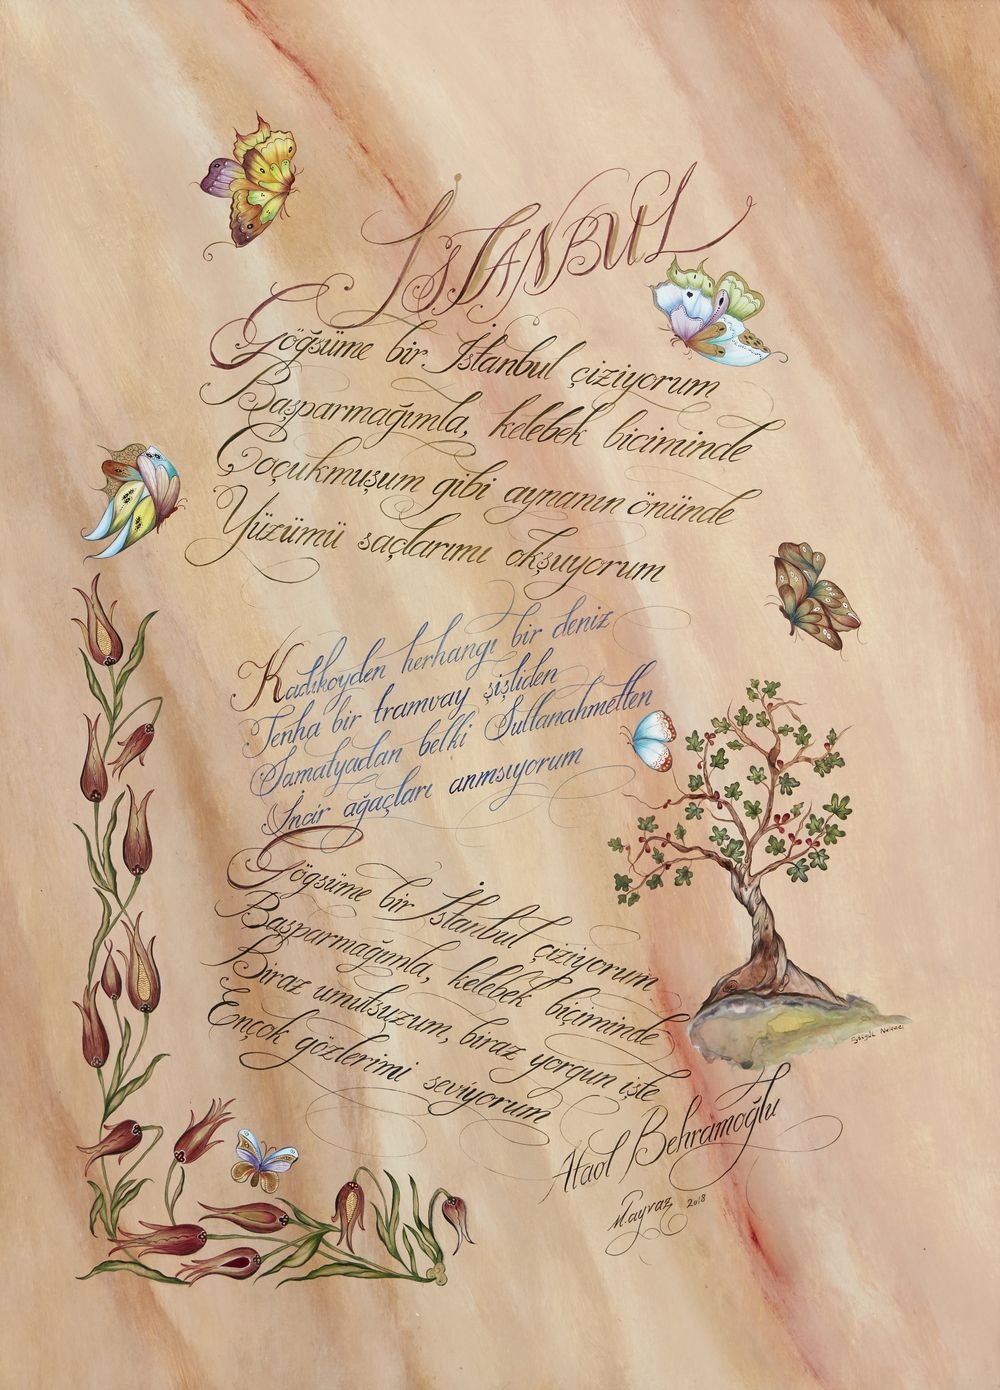 İSTANBUL
Göğsüme bir İstanbul çiziyorum
Başparmağımla, kelebek biciminde
Çoçukmuşum gibi aynanın önünde
Yüzümü saçlarımı okşuyorum
Kadıkoyden herhangı bir deniz
Tenha bir tramvay şişliden
Samatyadan belki Sultanahmetten
İncir ağaçları anmsıyorum
Göğsüme bir İstanbul çiziyorum
Başparmağımla, kelebek biçiminde
Biraz umutsuzum, biraz yorgun işte
Ençok gözlerimi seviyorum
Ataol Behramoğlu
2018